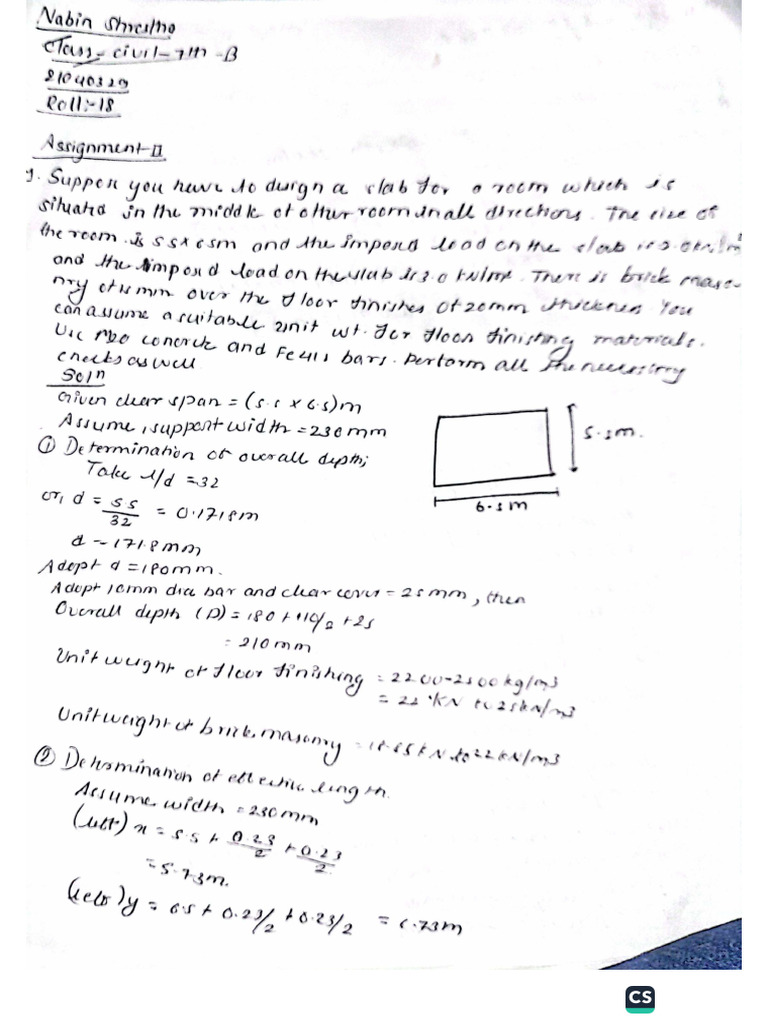 Nabin Shrestha
Class - civil - 7th - B
21040329
Roll:- 18
Assignment-II
1. Suppose you have to design a slab for a room which is
situated in the middle of other room in all directions. The size of
the room is 5.5 x 6.5m and the imposed load on the slab is
and the imposed load on the slab is 3.0 kN/m². There is brick maso-
nry of mm over the floor finishes of 20mm thickness. You
can assume a suitable unit wt. for floor finishing materials.
Use M20 concrete and Fe415 bars. Perform all the necessary
checks as well
Solⁿ
Given clear span = (5.5 x 6.5)m
Assume, support width = 230mm
5.5m.
6.5m
① Determination of overall depth;
Take l/d = 32
or, d = 5.5/32 = 0.1718m
d ~ 171.8mm
Adopt d = 180mm.
Adopt 10mm dia bar and clear cover = 25mm, then
Overall depth (D) = 180 + 10/2 + 25
= 210mm
Unit weight of floor finishing = 2200-2500kg/m3
= 22 kN to 25kN/m3
Unit weight of brick masonry = kN to 22kN/m3
② Determination of effective length.
Assume width = 230mm
(leff)x = 5.5 + 0.23/2 + 0.23/2
= 5.73m.
(leff)y = 6.5 + 0.23/2 + 0.23/2 = 6.73m
CS